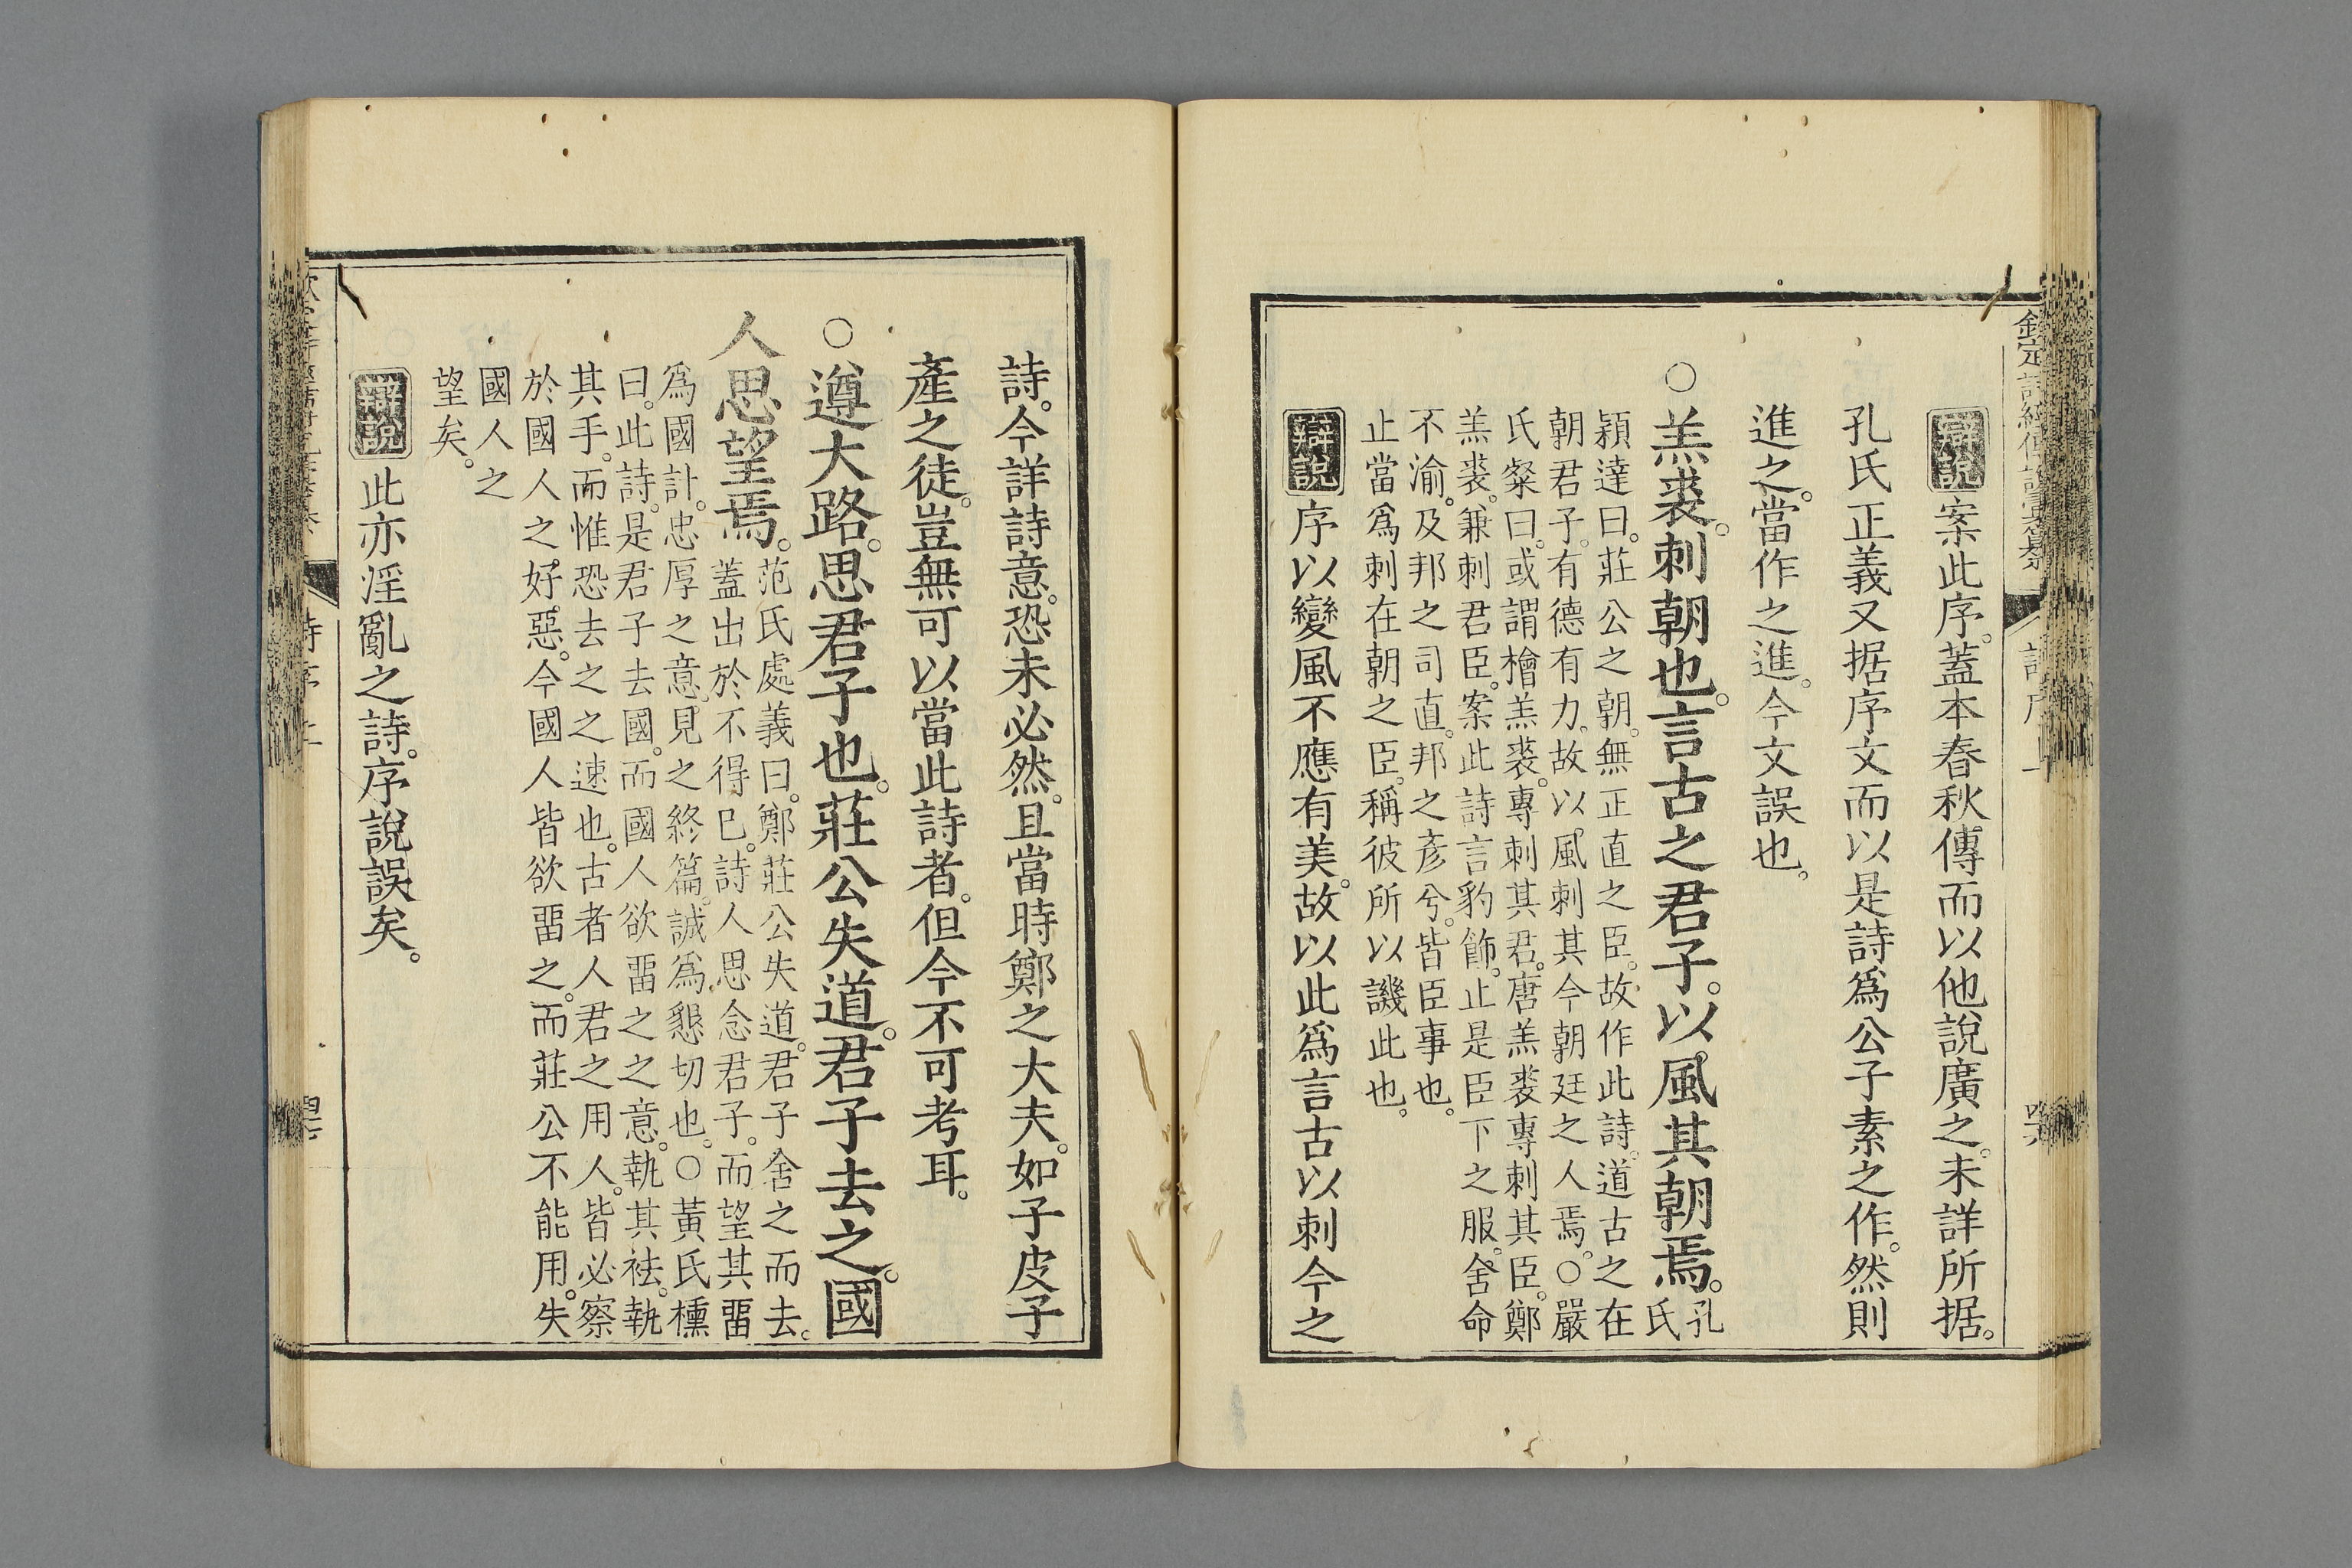 欽定詩經傳說彙纂
詩序上
辯說 案此序。蓋本春秋傳而以他說廣之。未詳所据。
孔氏正義又据序文而以是詩爲公子素之作。然則
進之。當作之進。今文誤也。
○羔裘。刺朝也。言古之君子。以風其朝焉。孔氏
穎達曰。莊公之朝。無正直之臣。故作此詩。道古之在
朝君子。有德有力。故以風刺其今朝廷之人焉。○嚴
氏粲曰。或謂檜羔裘。專刺其君。唐羔裘專刺其臣。鄭
羔裘。兼刺君臣。案此詩言豹飾。止是臣下之服。舍命
不渝。及邦之司直。邦之彥兮。皆臣事也。
止當爲刺在朝之臣。稱彼所以譏此也。
辯說 序以變風不應有美。故以此爲言古以刺今之
詩。今詳詩意。恐未必然。且當時鄭之大夫。如子皮子
產之徒。豈無可以當此詩者。但今不可考耳。
○遵大路。思君子也。莊公失道。君子去之。國
人思望焉。
范氏處義曰。鄭莊公失道。君子舍之而去。
蓋出於不得已。詩人思念君子。而望其畱
爲國計。忠厚之意。見之終篇。誠爲懇切也。○黃氏櫄
曰。此詩。是君子去國。而國人欲畱之之意。執其袪。執
其手。而惟恐去之之速也。古者人君之用人。皆必察
於國人之好惡。今國人皆欲畱之。而莊公不能用。失
國人之
望矣。
辯說 此亦淫亂之詩。序說誤矣。
詩序上